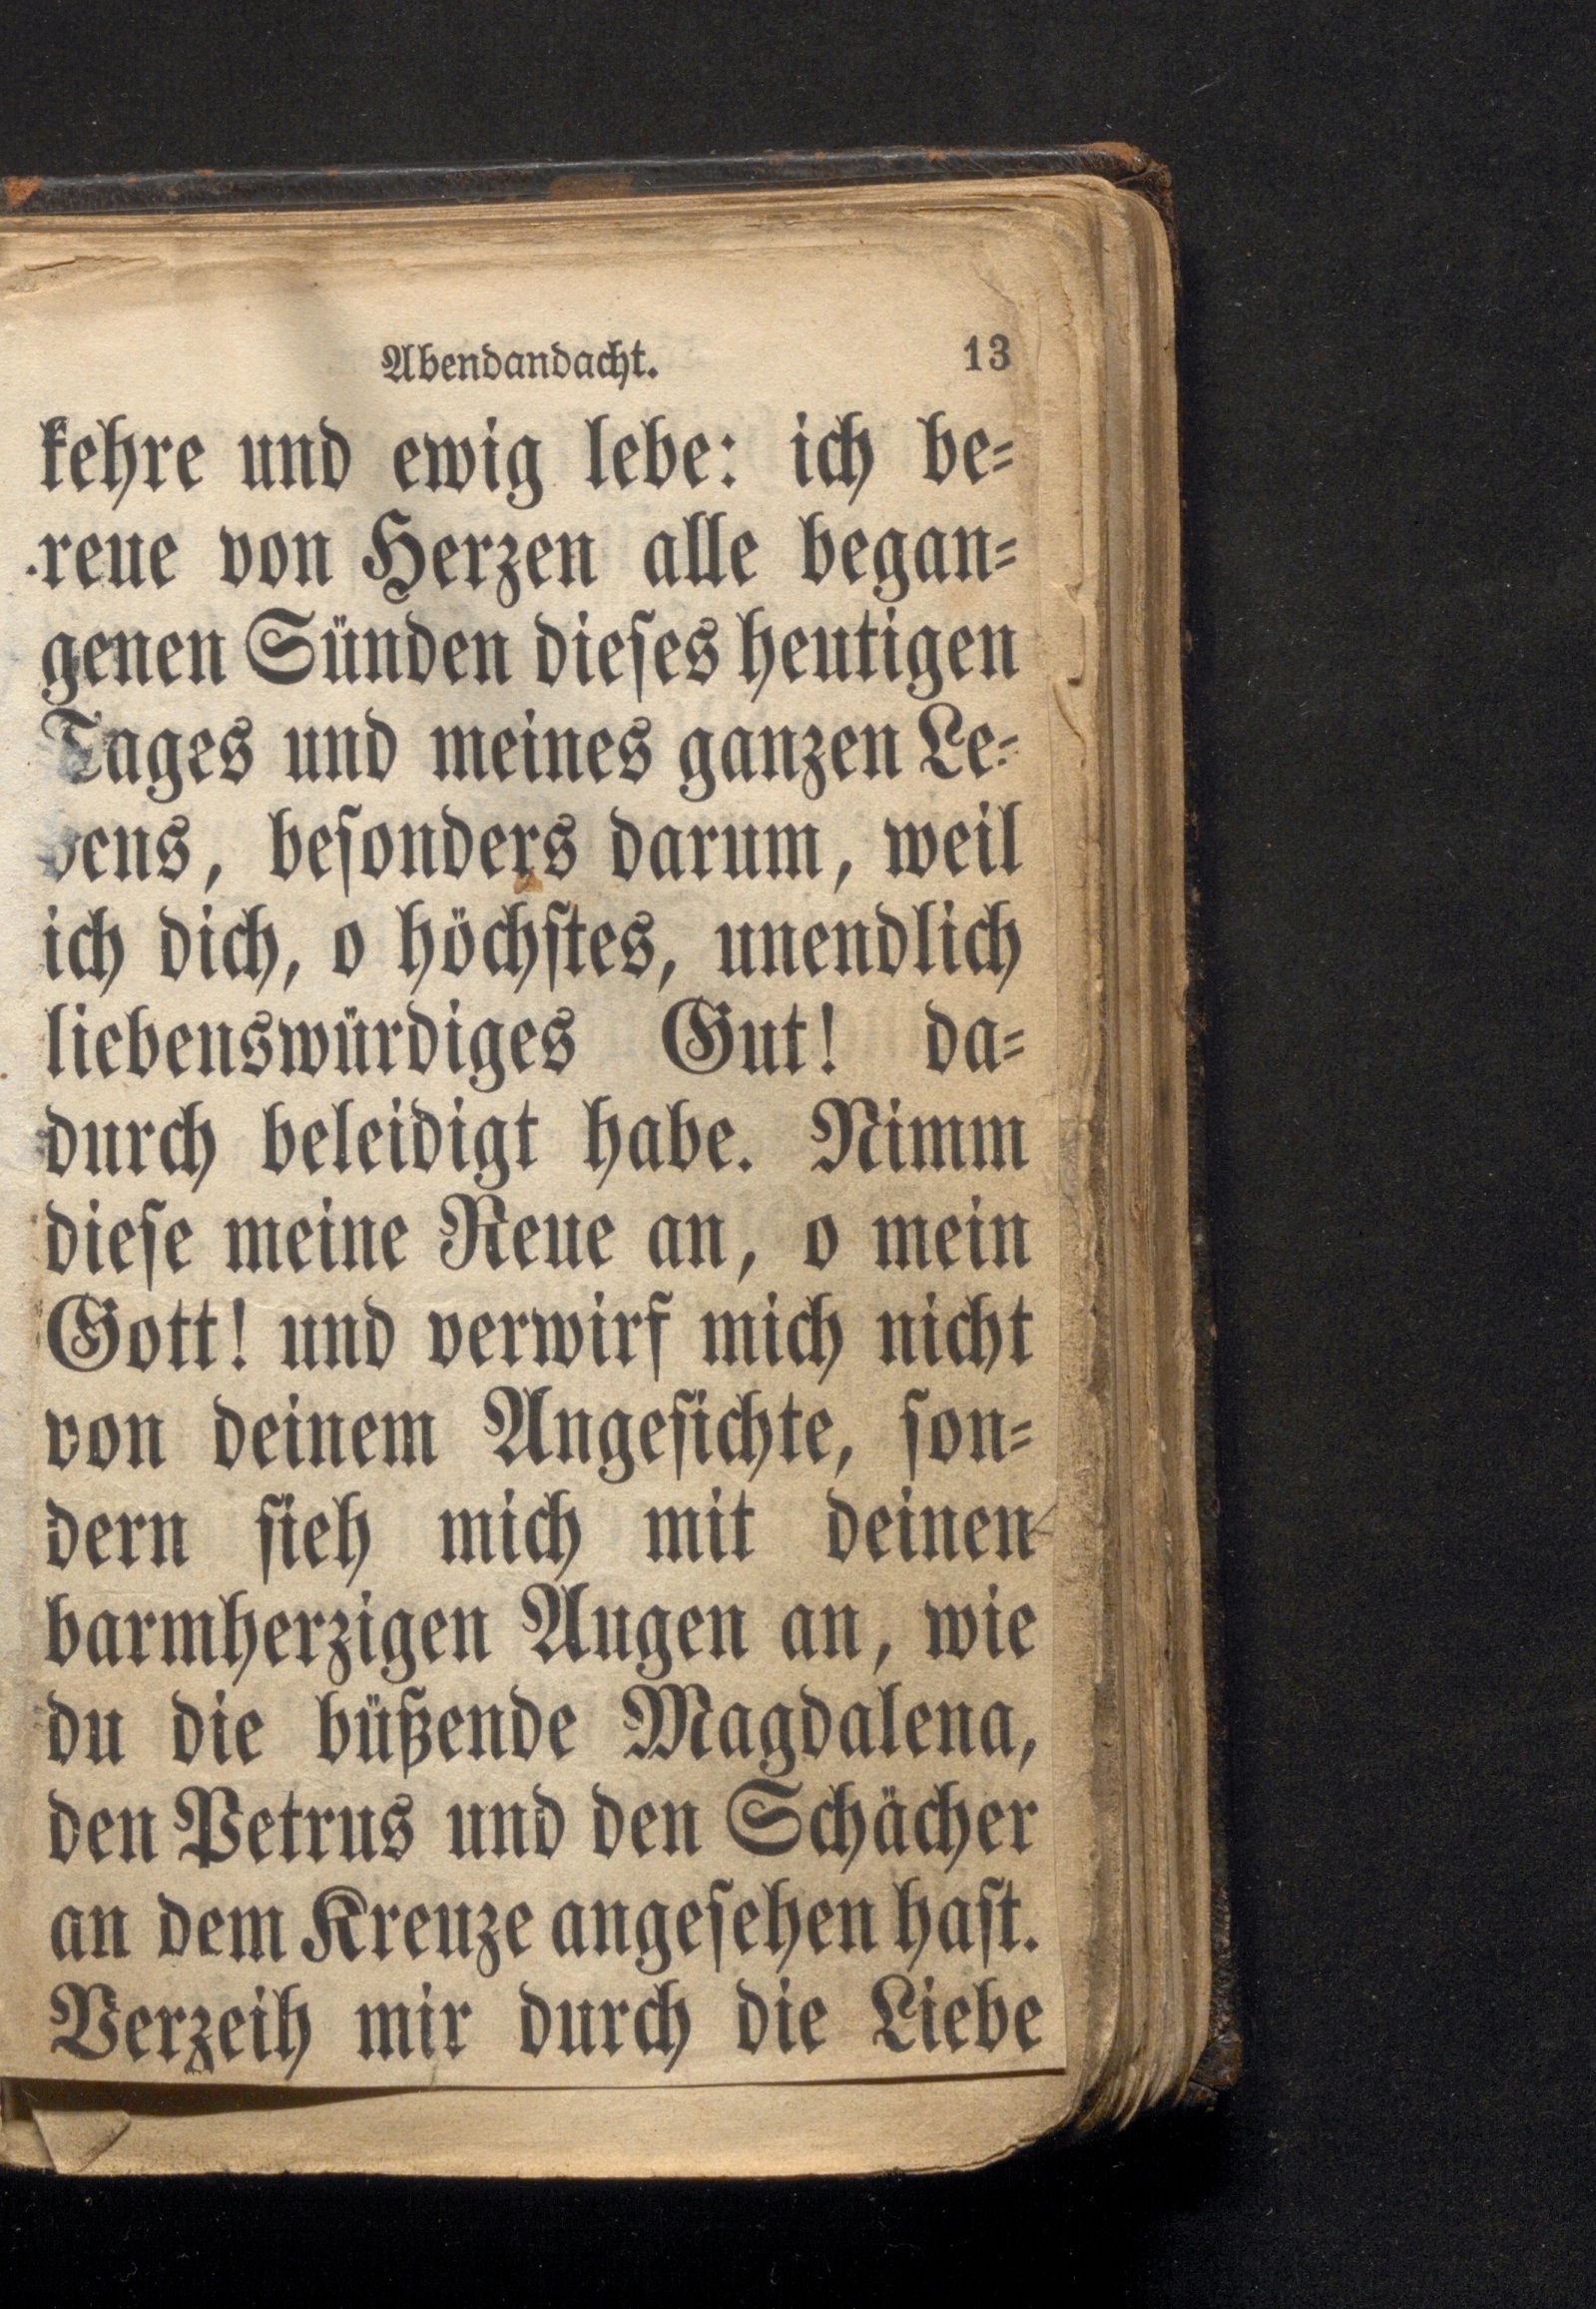 Abendandacht. 13
kehre und ewig lebe: ich be=
reue von Herzen alle began=
genen Sünden dieſes heutigen
Tages und meines ganzen Le=
bens, beſonders darum, weil
ich dich, o höchſtes, unendlich
liebenswürdiges Gut! da=
durch beleidigt habe. Nimm
dieſe meine Reue an, o mein
Gott! und verwirf mich nicht
von deinem Angeſichte, ſon=
dern ſieh mich mit deinen
barmherzigen Augen an, wie
du die büßende Magdalena,
den Petrus und den Schächer
an dem Kreuze angeſehen haſt.
Verzeih mir durch die Liebe